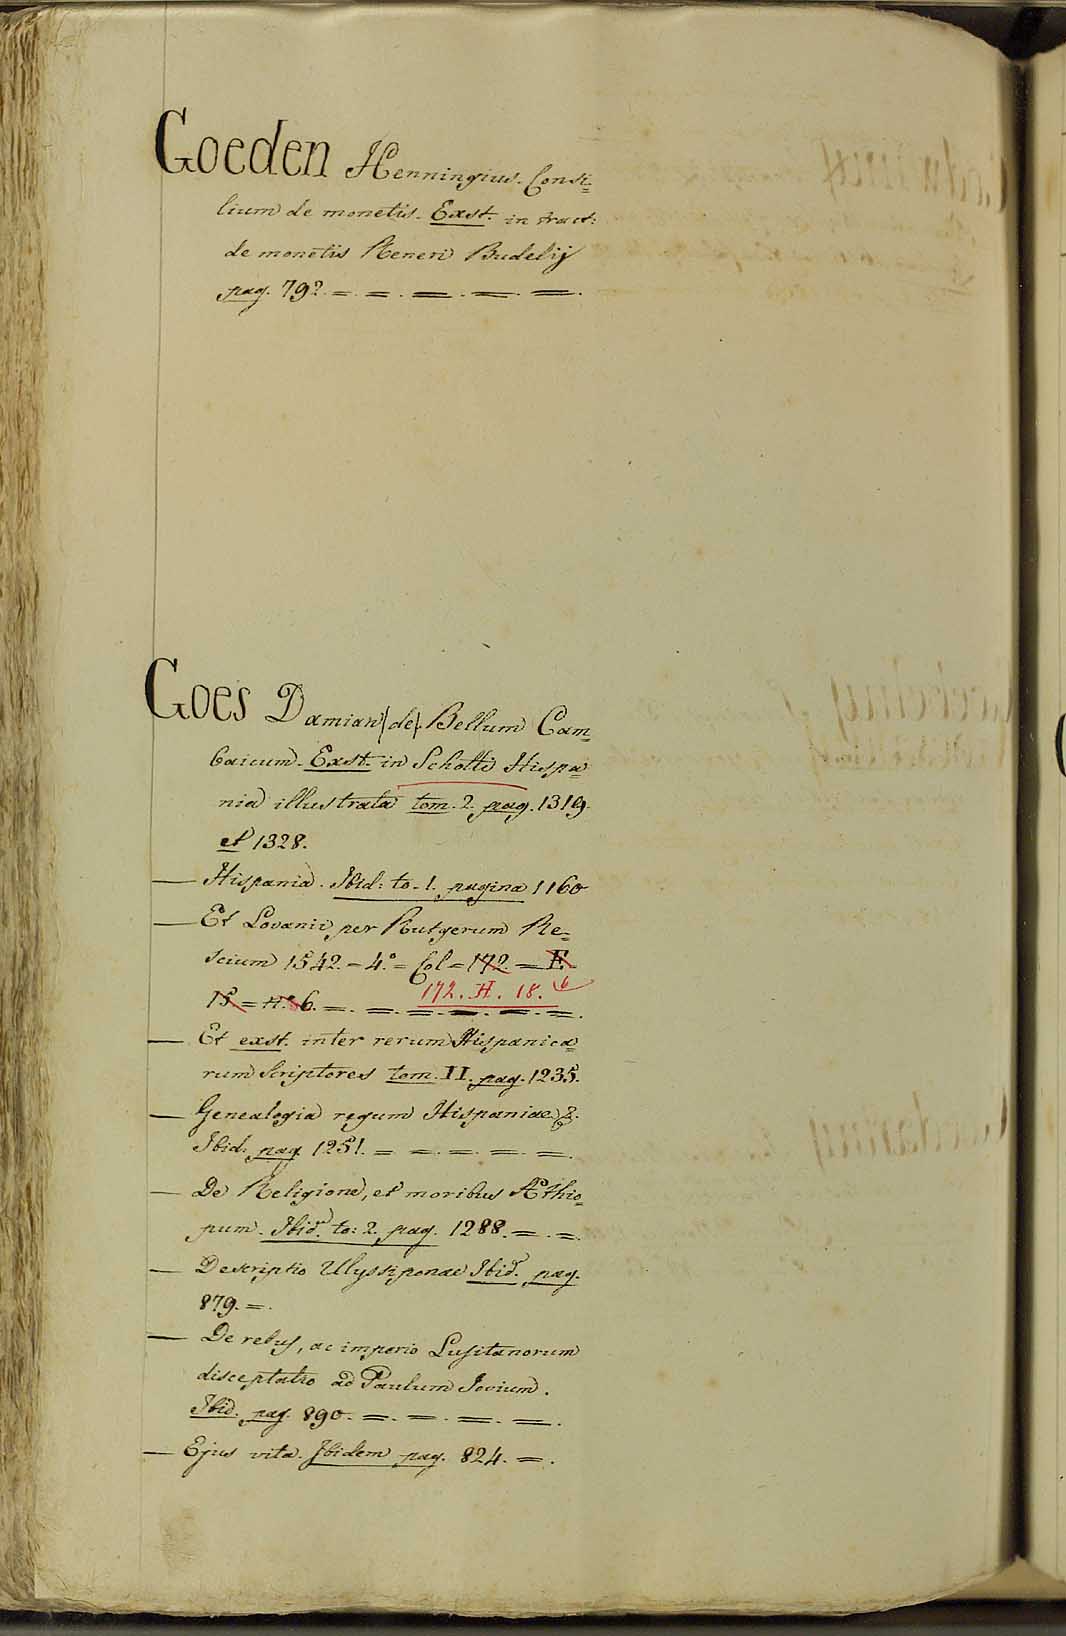 Goeden Henningius. Consi=
lium de monetis. Exst. in tract:
de monetis Reneri Budelij
pag. 792. = . = . = . = . = .
Goes Damian (de). Bellum Cam=
baicum. Exst. in Schotti Hispa=
nia illustrata tom. 2. pag. 1319.
et 1328.
— Hispania. Ibid: to. 1. pagina 1160
— Et Lovanii per Rutgerum Re=
scium 1542. = 4.° = Col = 172. = F.
15 = N.° 6. = . = . = . = . = . = .
172. H. 18. 6
— Et exst. inter rerum Hispanica=
rum Scriptores tom. II. pag. 1235.
— Genealogia regum Hispaniae &.
Ibid. pag. 1251. = . = . = . = . = .
— De Religione, et moribus Æthio=
pum. Ibid. to: 2. pag. 1288. = . = .
— Descriptio Ulyssiponae Ibid. pag.
879. = .
— De rebus, ac imperio Lusitanorum
disceptatio ad Paulum Jovium.
Ibid. pag. 890. = . = . = . = .
— Ejus vita. Ibidem pag. 824. = .